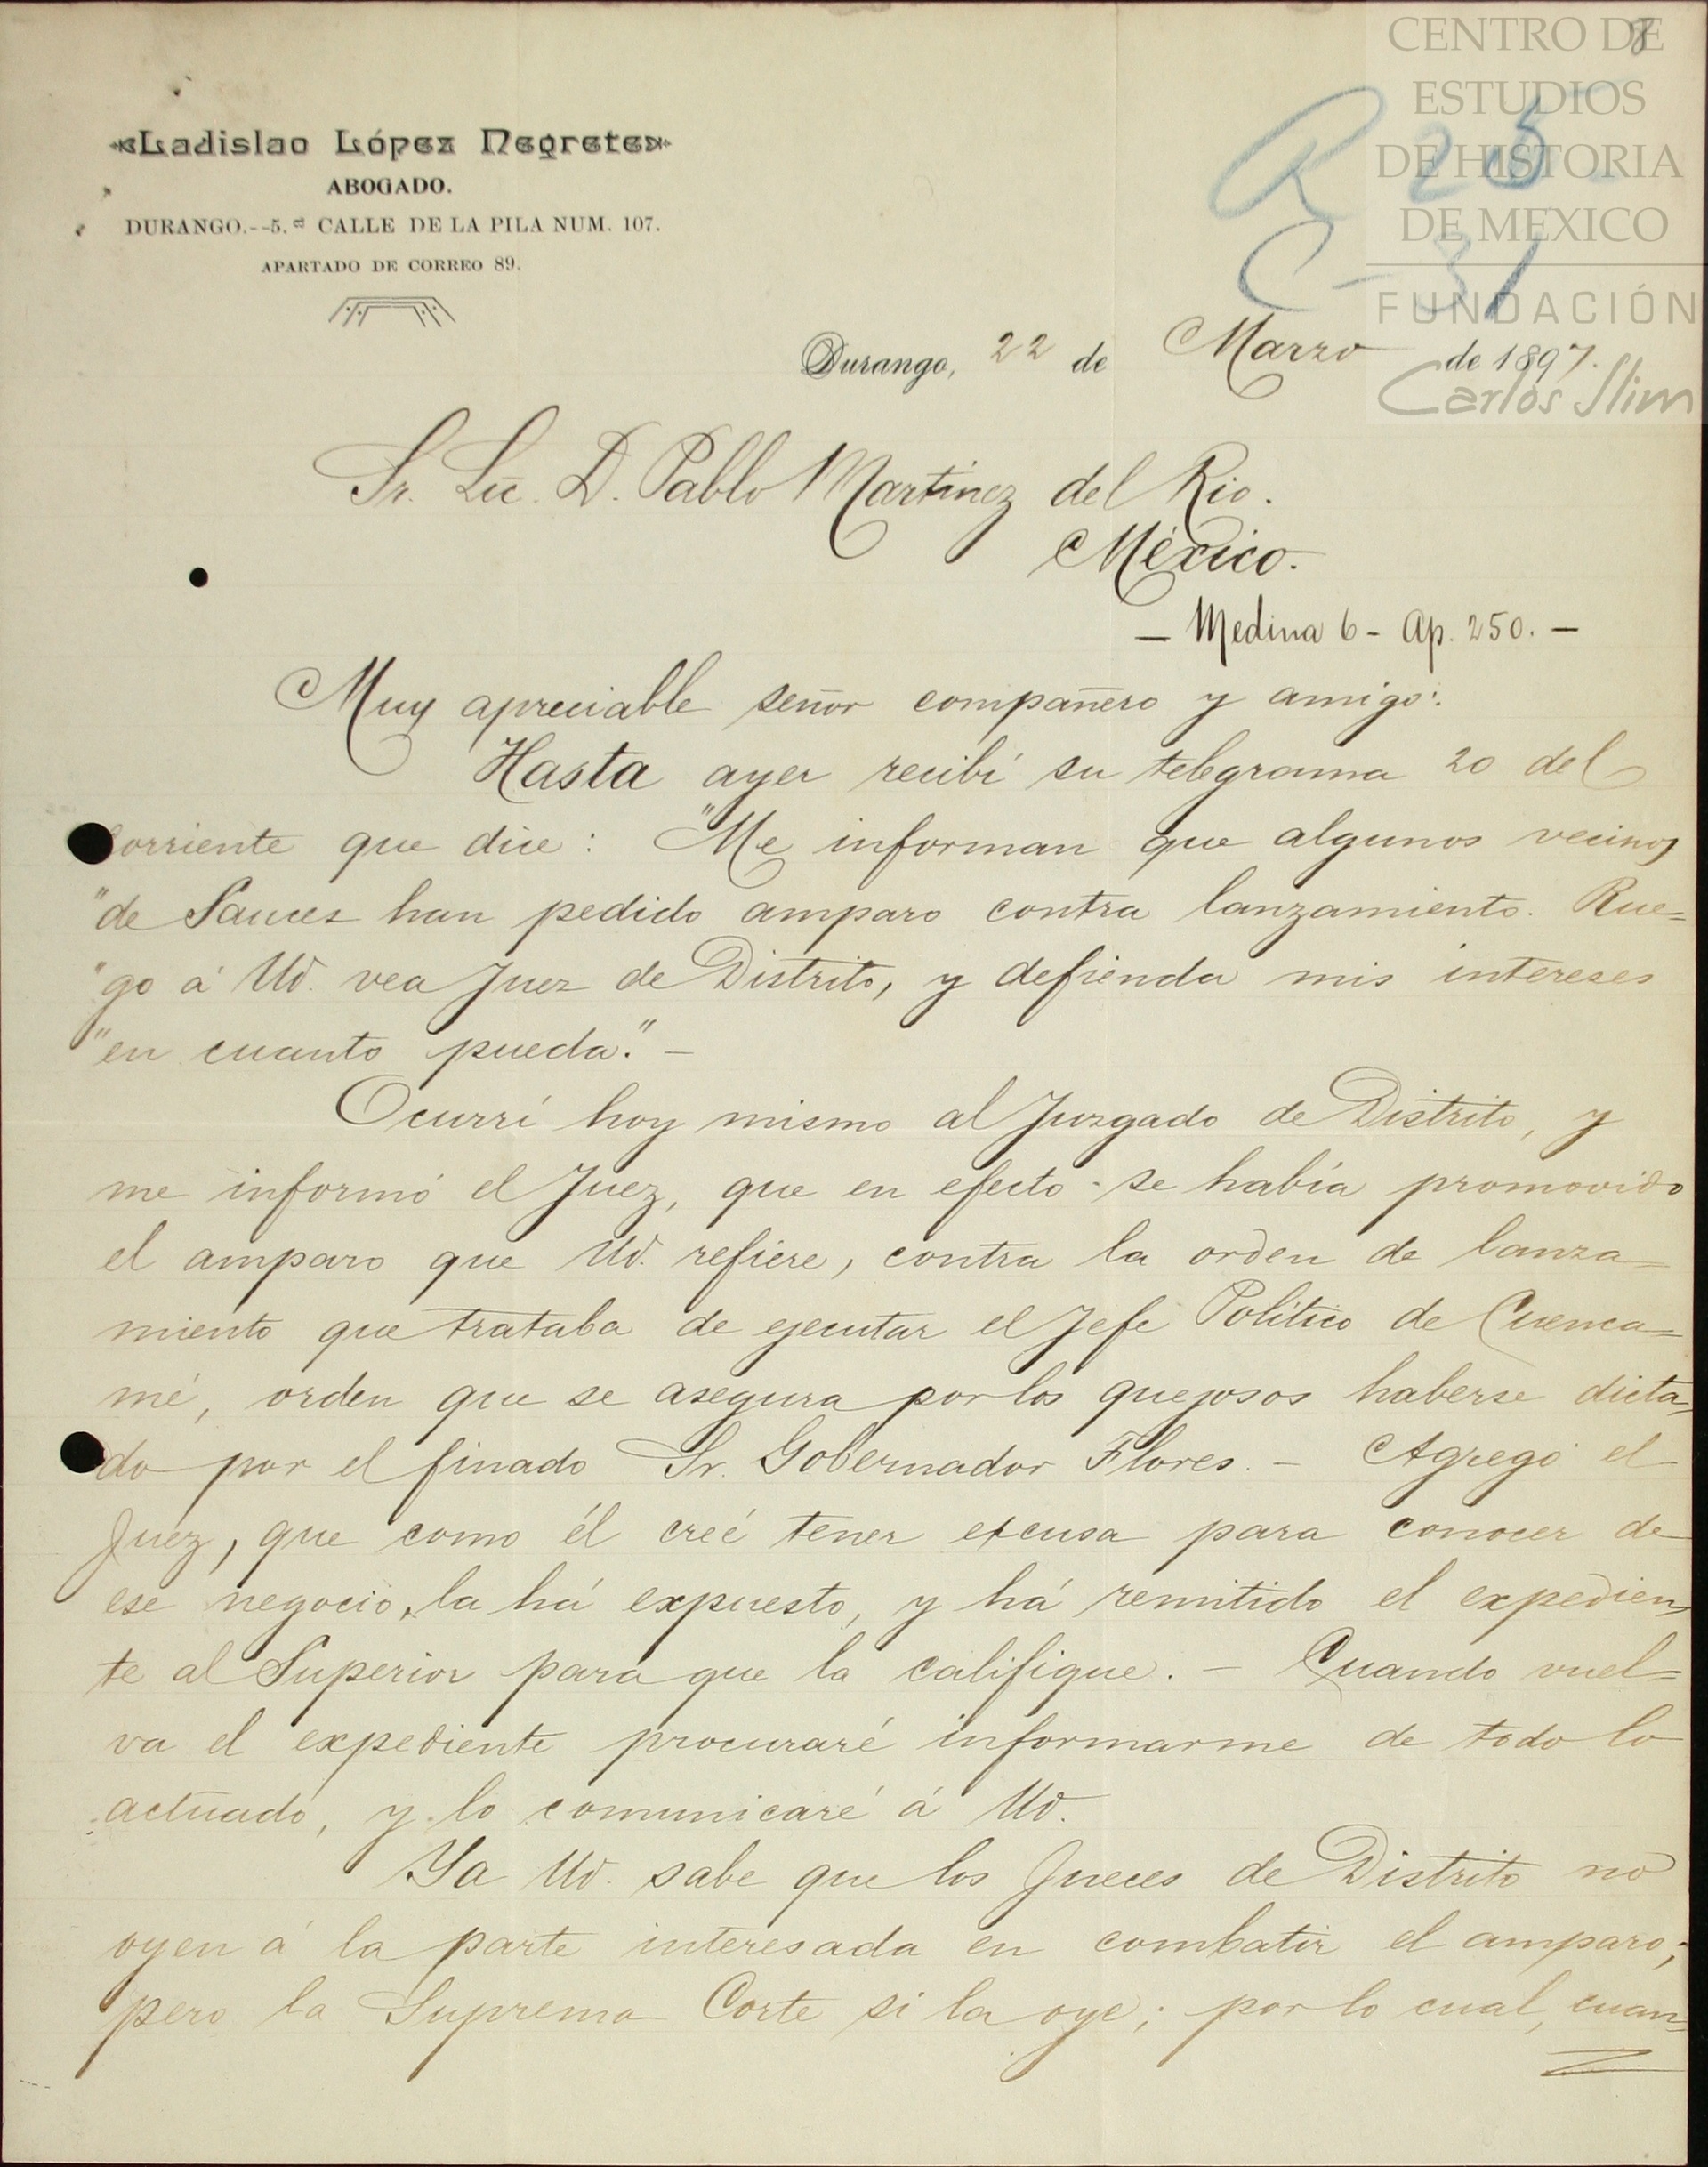 8
CENTRO DE
ESTUDIOS
DE HISTORIA
DE MEXICO
FUNDACIÓN
Carlos Slim
R 25
C-31
Ladislao López Negrete
ABOGADO.
DURANGO.--5.ª CALLE DE LA PILA NUM. 107.
APARTADO DE CORREO 89.
Durango, 22 de Marzo de 1897.
Sr. Lic. D. Pablo Martinez del Rio.
México.
— Medina 6 - Ap. 250. —
Muy apreciable señor compañero y amigo:
Hasta ayer recibí su telegrama 20 del
corriente que dice: "Me informan que algunos vecinos
"de Sauces han pedido amparo contra lanzamiento. Rue=
"go á Ud. vea Juez de Distrito, y defienda mis intereses
"en cuanto pueda." —
Ocurrí hoy mismo al Juzgado de Distrito, y
me informó el Juez, que en efecto se había promovido
el amparo que Ud. refiere, contra la orden de lanza=
miento que trataba de ejecutar el Jefe Político de Cuenca=
mé, orden que se asegura por los quejosos haberse dicta=
do por el finado Sr. Gobernador Flores. — Agregó el
Juez, que como él creé tener excusa para conocer de
ese negocio, la há expuesto, y há remitido el expedien=
te al Superior para que la califique. — Cuando vuel=
va el expediente procuraré informarme de todo lo
actuado, y lo comunicaré á Ud.
Ya Ud. sabe que los Jueces de Distrito no
oyen á la parte interesada en combatir el amparo;
pero la Suprema Corte si la oye; por lo cual, cuan=